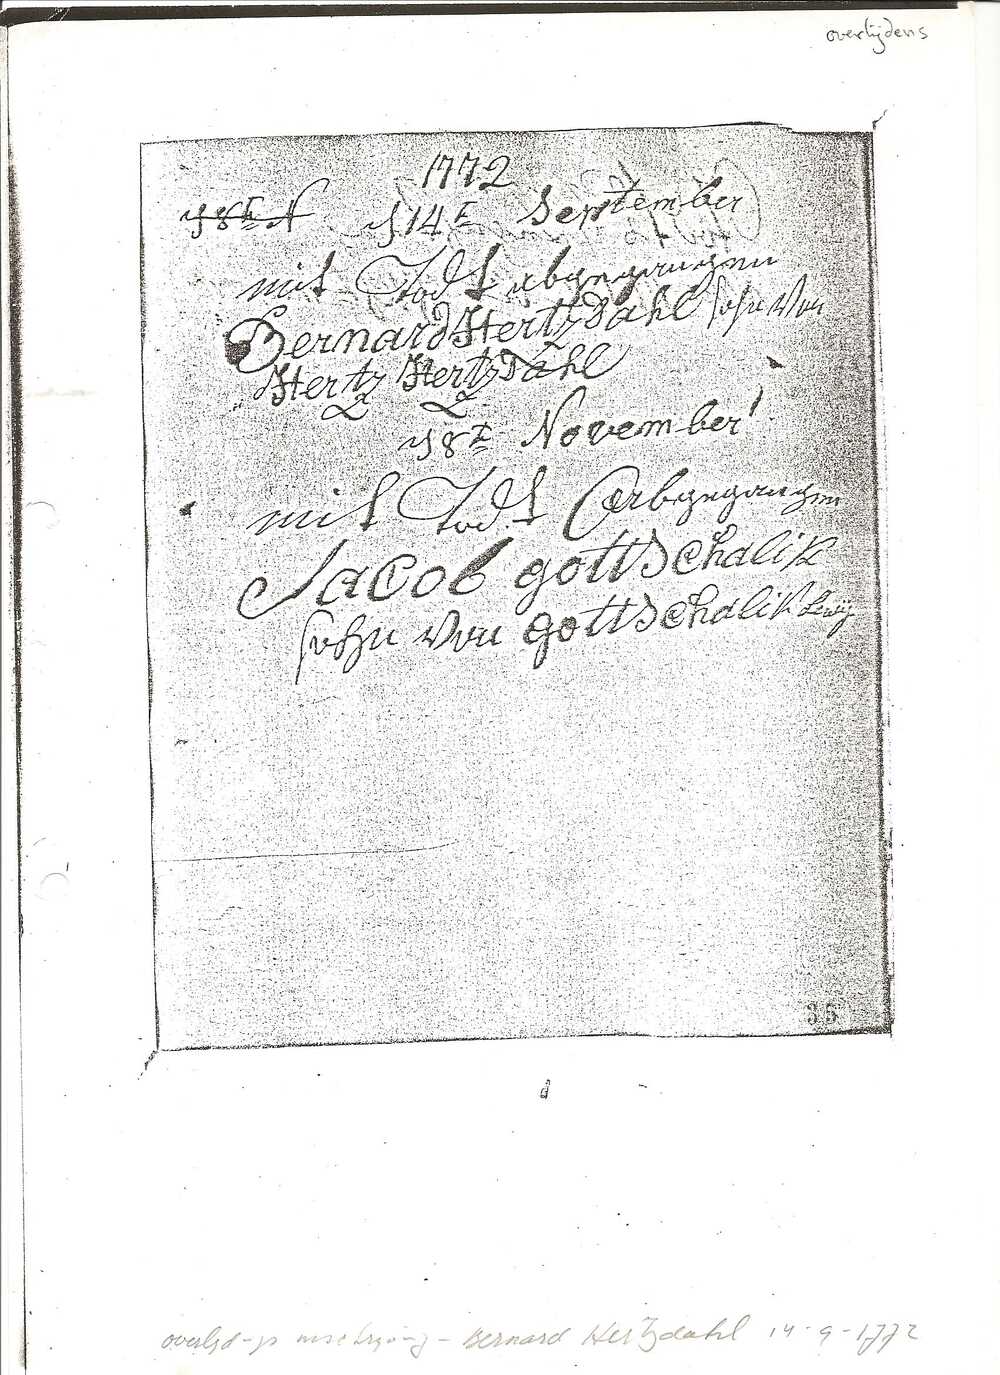 overlijdens
1772
d 14t September
mit Todt abgegangen
Bernard Hertz Dahl sohn Von
Hertz Hertz Dahl
d 8t November
mit Todt abgegangen
Jacob gottschalik
sohn Von gottschalik Lewij
36
overlijd-gs inschrijving - Bernard Hertzdahl 14-9-1772